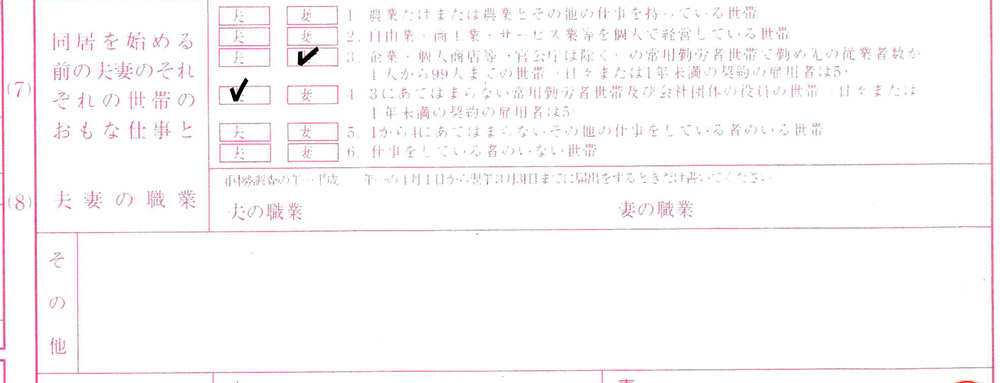 (7)
同居を始める
前の夫妻のそれ
ぞれの世帯の
おもな仕事と
夫 妻 1. 農業だけまたは農業とその他の仕事を持っている世帯
夫 妻 2. 自由業・商工業・サービス業等を個人で経営している世帯
夫 妻 3. 企業・個人商店等(官公庁は除く)の常用勤労者世帯で勤め先の従業者数が
1人から99人までの世帯(日々または1年未満の契約の雇用者は5)
夫 妻 4. 3にあてはまらない常用勤労者世帯及び会社団体の役員の世帯(日々または
1年未満の契約の雇用者は5)
夫 妻 5. 1から4にあてはまらないその他の仕事をしている者のいる世帯
夫 妻 6. 仕事をしている者のいない世帯
(8)
夫妻の職業
(国勢調査の年…平成 年…の4月1日から翌年3月31日までに届出をするときだけ書いてください)
夫の職業 妻の職業
その他